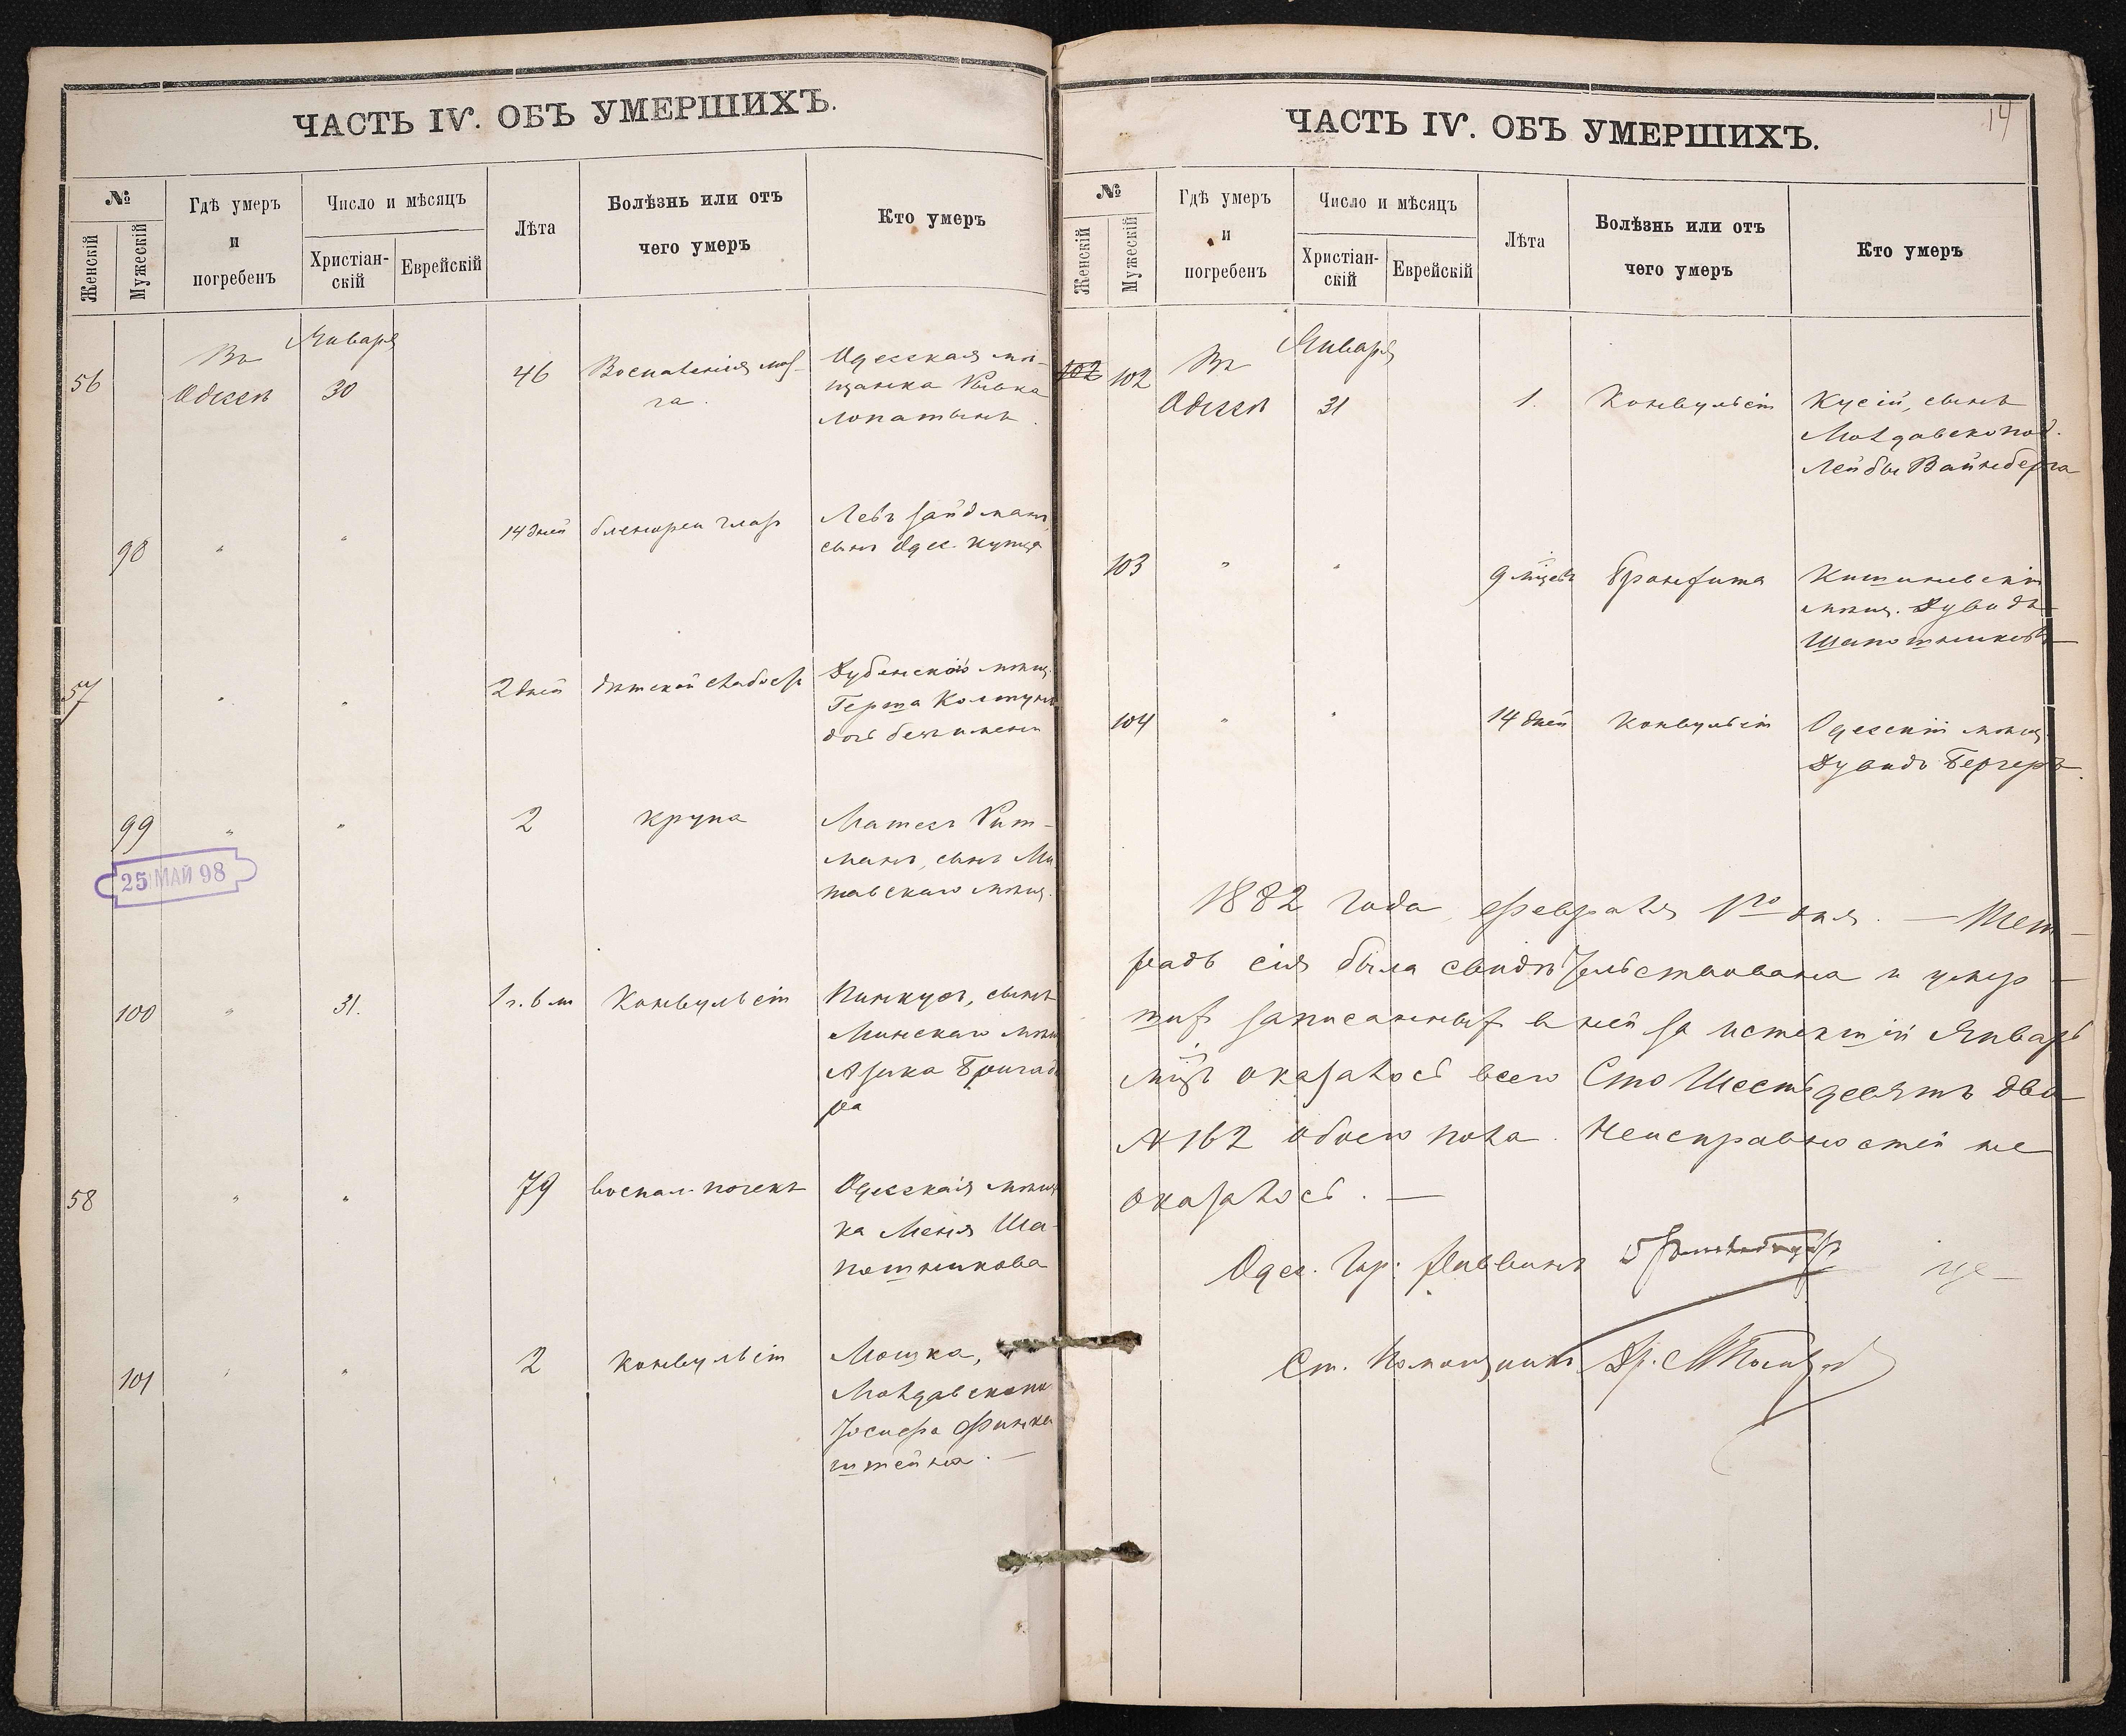 ЧАСТЬ IV. ОБЪ УМЕРШИХЪ.
№
Женскій
Мужескій
Гдѣ умеръ
и
погребенъ
Число и мѣсяцъ
Христіан-
скій
Еврейскій
Лѣта
Болѣзнь или отъ
чего умеръ
Кто умеръ
56
Въ
Одессѣ
Января
30
46
Воспаленія моз-
га.
Одесская мѣ-
щанка Рывка
Лопатынъ.
98
"
"
14 дней
бленореи глаз
Левъ Зайдманъ,
сынъ Одес. купца
57
"
"
2 дней
дѣтской слабос
Дубенскаго мѣщ.
Герша Колтунъ
дочь безъ имени
99
"
"
2
крупа
Матес Рит-
манъ, сынъ Ми
тавскаго мѣщ.
25 МАЙ 98
100
"
31.
1 г. 6 м
Конвульсій
Пинкусъ, сынъ
Минскаго мѣщ
Азика Бригади
ра
58
"
"
79
воспал. почекъ
Одесская мѣщан
ка Меня Ша-
пошникова
101
"
"
2
Конвульсій
Мошка,
Молдавскопо
Іосифа Финкел
штейна. —
14
ЧАСТЬ IV. ОБЪ УМЕРШИХЪ.
№
Женскій
Мужескій
Гдѣ умеръ
и
погребенъ
Число и мѣсяцъ
Христіан-
скій
Еврейскій
Лѣта
Болѣзнь или отъ
чего умеръ
Кто умеръ
102
102
Въ
Одессѣ
Января
31
1.
Конвульсій
Кусій, сынъ
Молдавскопод.
Лейбы Вайнберга
103
"
"
9 мцевъ
Бронхита
Кишиневскій
мѣщ. Дувидъ
Шапошниковъ
104
"
"
14 дней
Конвульсій
Одесскій мѣщ.
Дувидъ Бергеръ.
1882 года, февраля 1го дня. — Тет-
радь сія была свидѣтельствована и умер-
шихъ записанныхъ в ней за истекшій Январь
мцъ оказалось всего Сто Шестьдесятъ два
№ 162 обоего пола. Неисправностей не
оказалось. —
Одес. Гор. Раввинъ
Ст. Помощникъ Др.